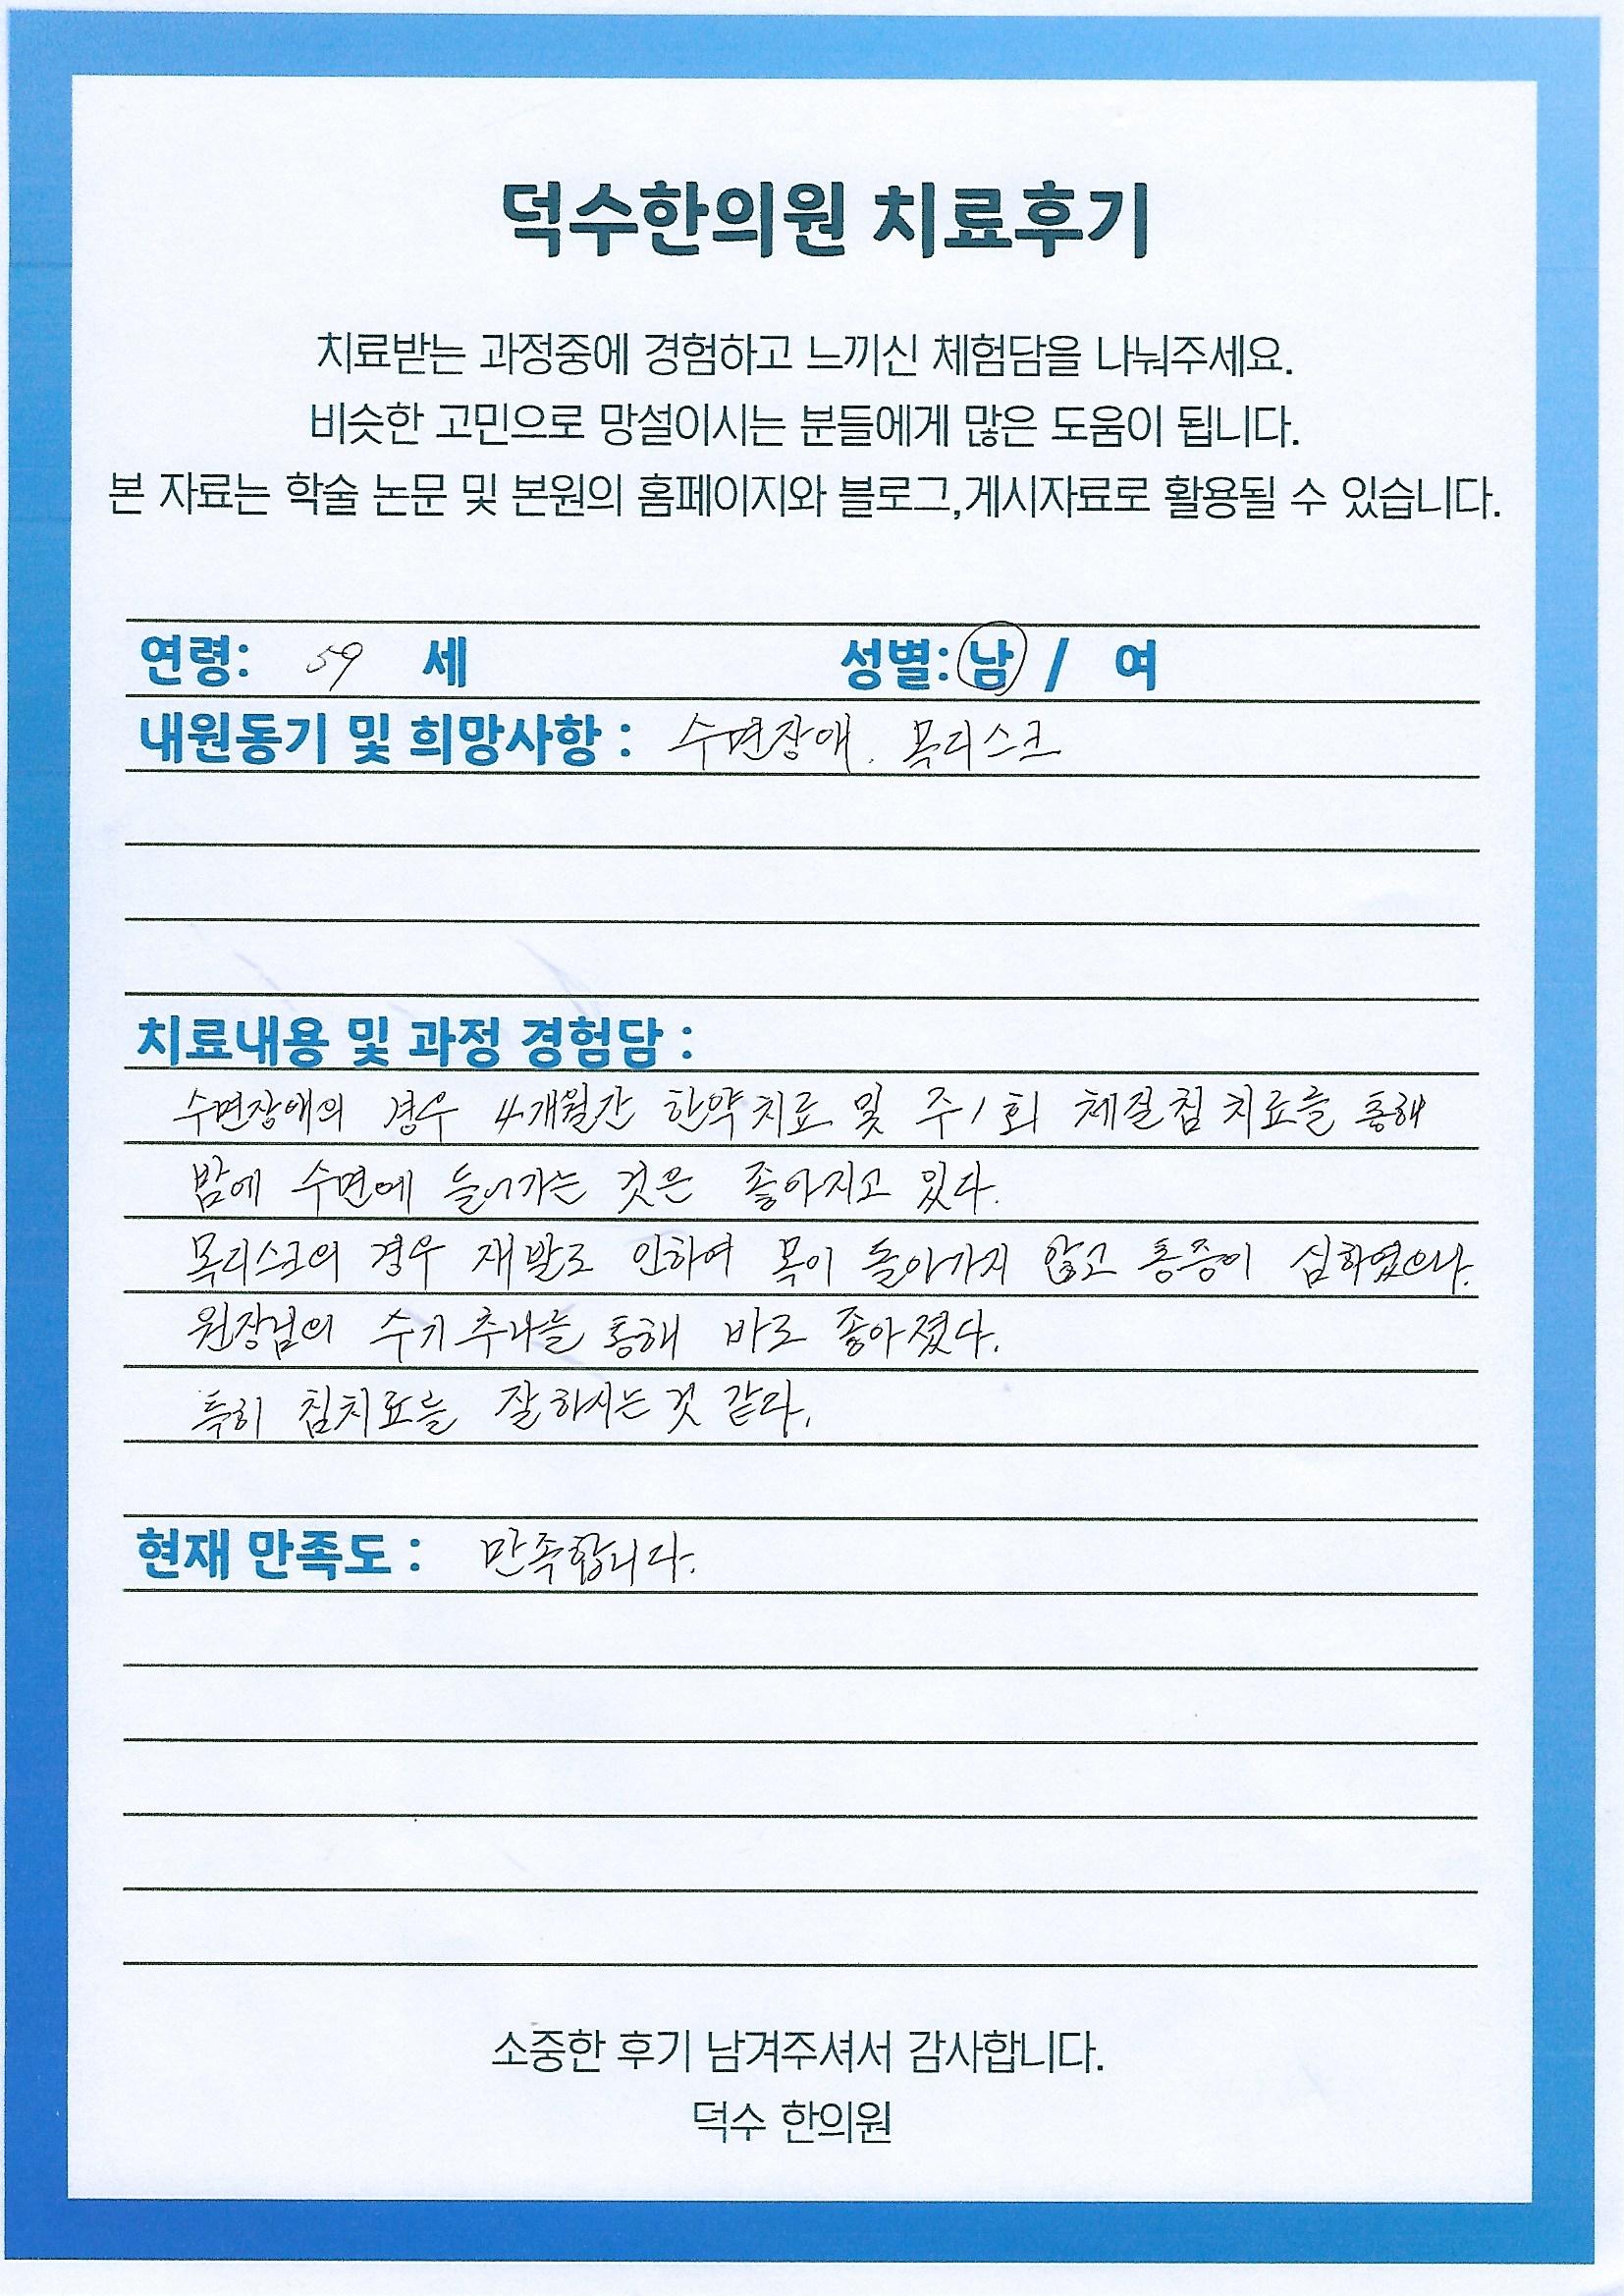 덕수한의원 치료후기
치료받는 과정중에 경험하고 느끼신 체험담을 나눠주세요.
비슷한 고민으로 망설이시는 분들에게 많은 도움이 됩니다.
본 자료는 학술 논문 및 본원의 홈페이지와 블로그,게시자료로 활용될 수 있습니다.
연령: 59 세 성별: 남 / 여
내원동기 및 희망사항 : 수면장애. 목디스크
치료내용 및 과정 경험담 :
수면장애의 경우 4개월간 한약치료 및 주1회 체질침 치료를 통해
밤에 수면에 들어가는 것은 좋아지고 있다.
목디스크의 경우 재발로 인하여 목이 돌아가지 않고 통증이 심하였으나.
원장님의 수기추나를 통해 바로 좋아졌다.
특히 침치료를 잘하시는 것 같다.
현재 만족도 : 만족합니다.
소중한 후기 남겨주셔서 감사합니다.
덕수 한의원